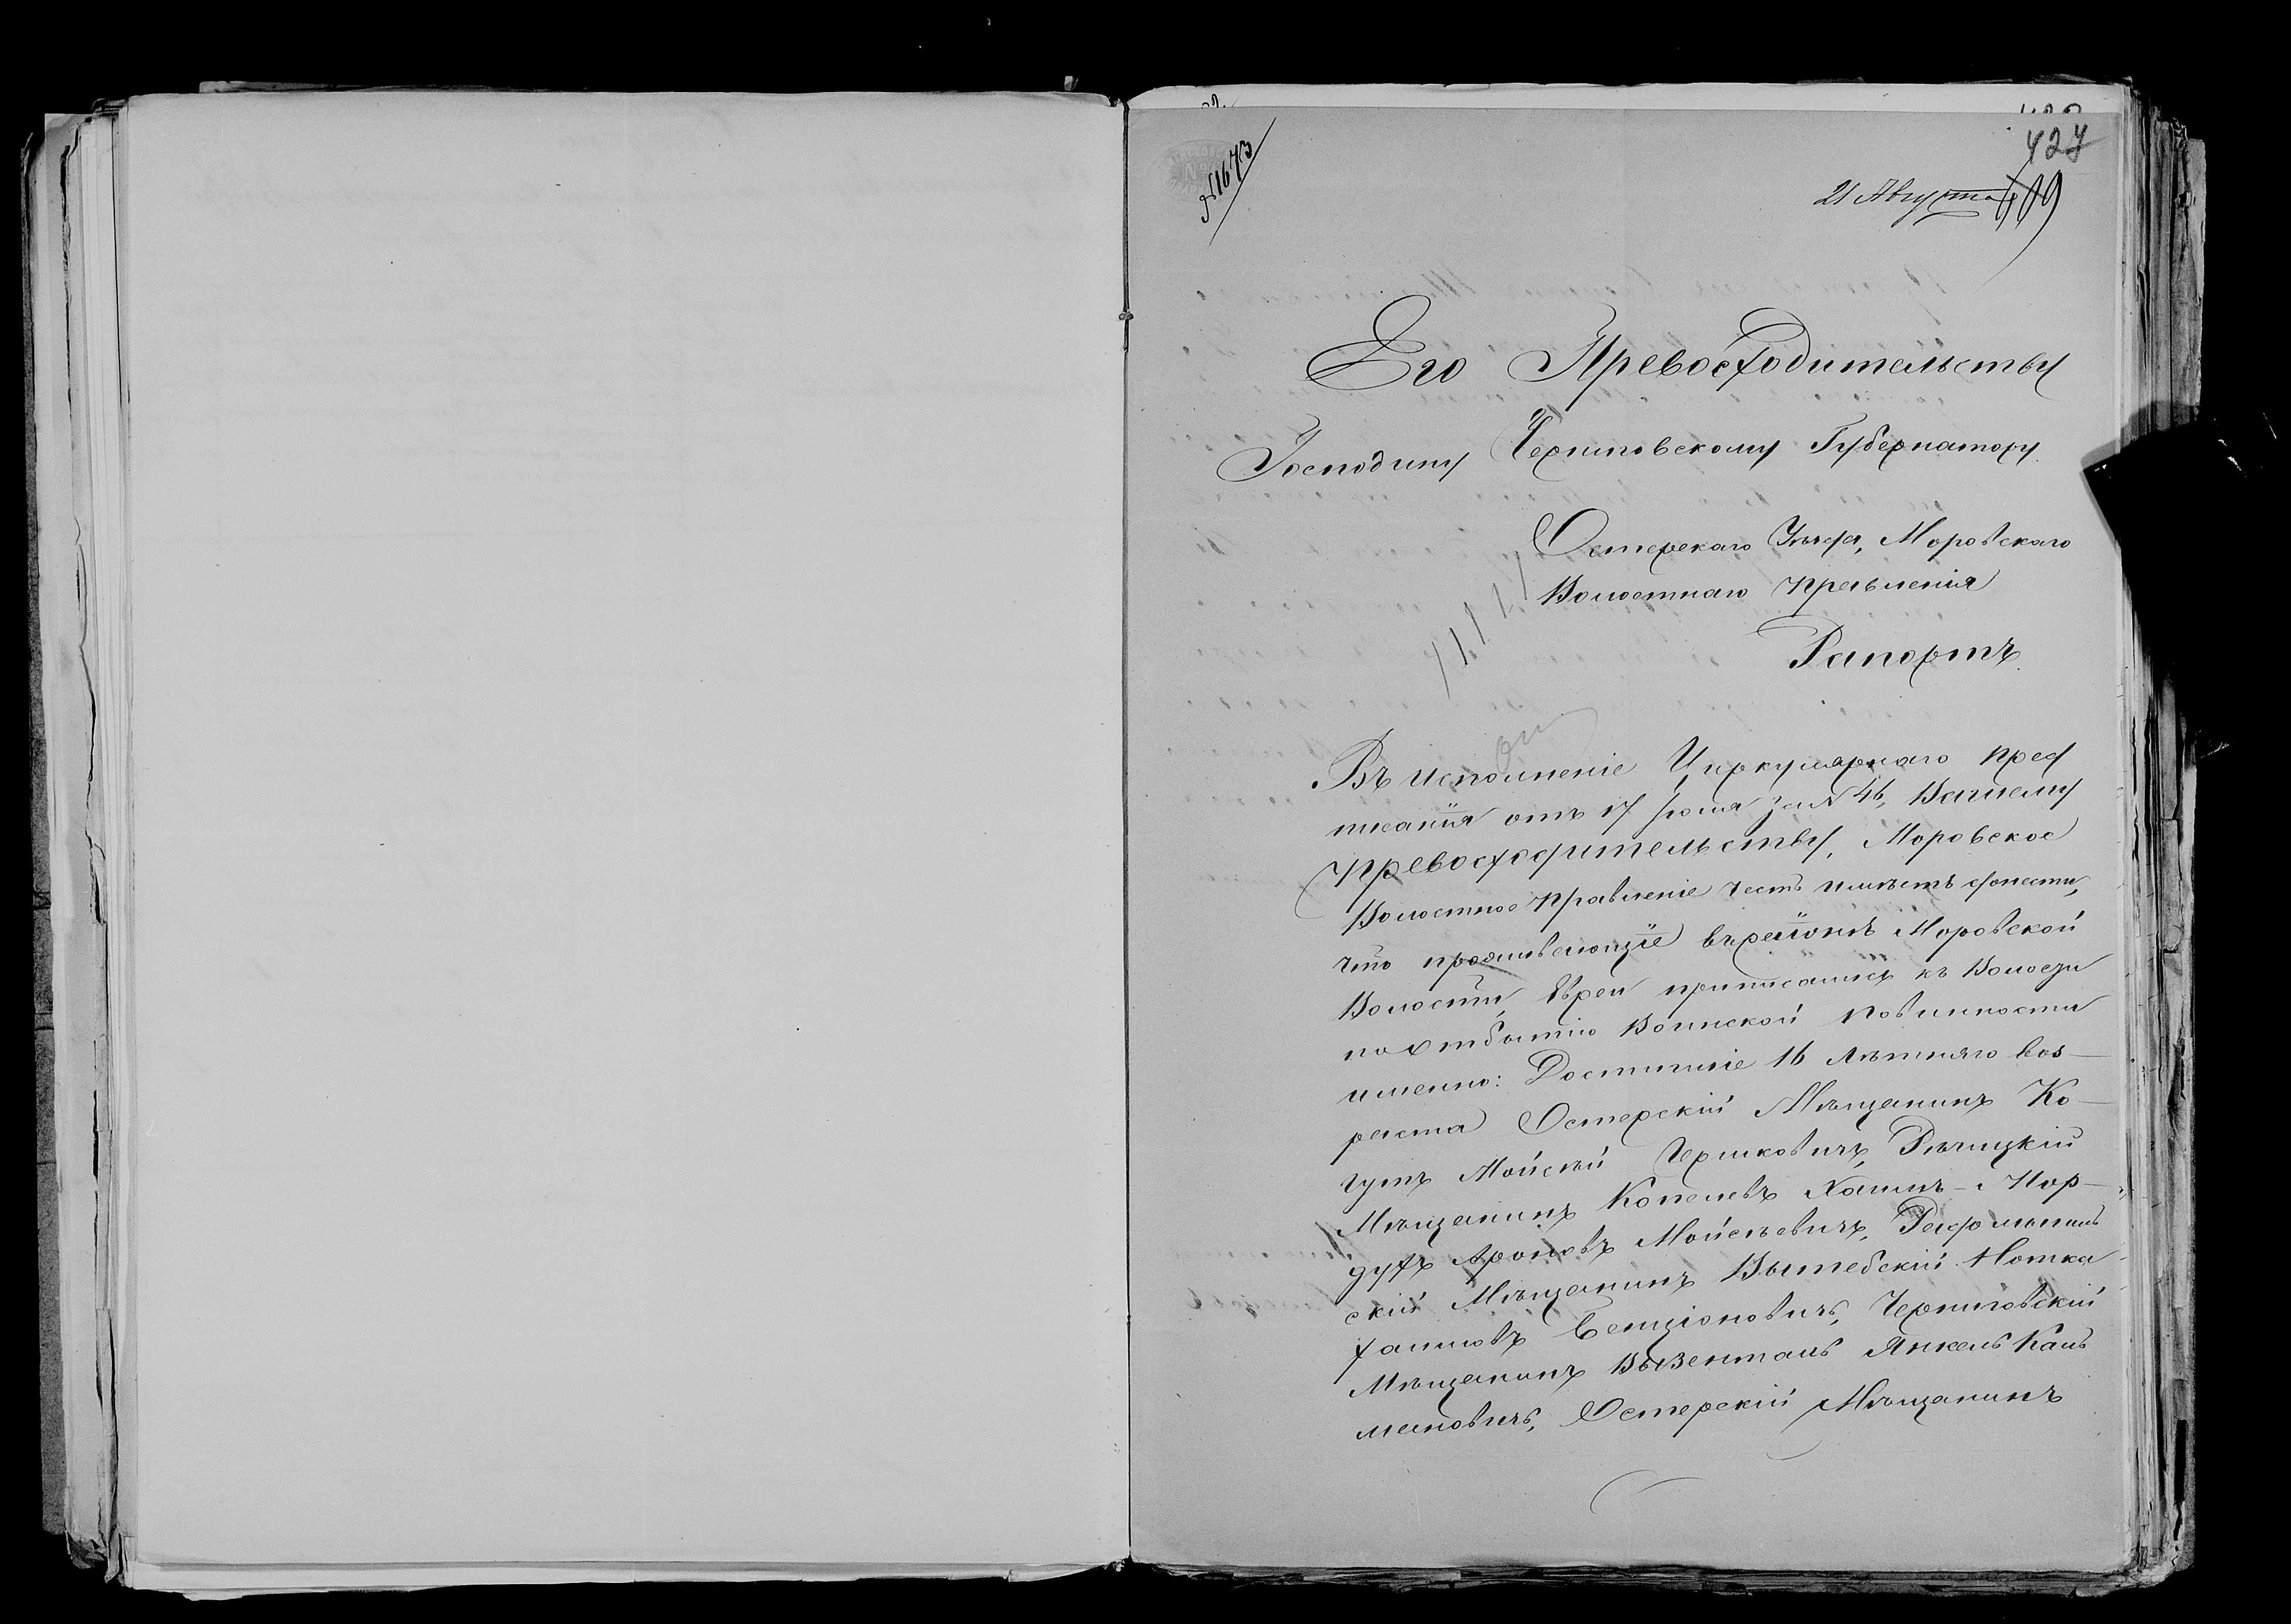 № 1673
427
21 Августа
409
Его Превосходительству
Господину Черниговскому Губернатору
Остерскаго Уѣзда, Моровскаго
Волостнаго Правленія
Рапортъ.
Въ исполненіе Циркулярнаго пред
писанія отъ 17 Іюля за № 46, Вашему
Превосходительству, Моровское
Волостное Правленіе честь имѣетъ донести,
что проживающіе въ раіонѣ Моровской
Волости, Евреи приписались къ Волости
по отбытію Воинской повинности
именно: Достигшіе 16 лѣтняго воз-
раста Остерскій Мѣщанинъ Ко-
гутъ Мойсѣй Гершковичъ, Рѣчицкій
Мѣщанинъ Копелевъ Хаимъ-Мор-
духъ Ароновъ Мойсѣевичъ, Радомысль
скій Мѣщанинъ Вытебскій Нотка
Хаимовъ Бенціоновичъ, Черниговскій
Мѣщанинъ Вызенталь Янкель Каль
мановичъ, Остерскій Мѣщанинъ